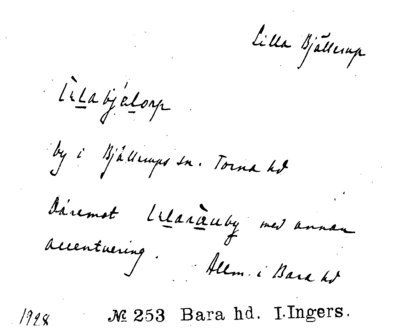 Lilla Bjällerup
lìlabjälorp
by i Bjällerups sn. Torna hd
Däremot lìlaràuby med annan
accentuering.
Allm. i Bara hd
1928 № 253 Bara hd. I. Ingers.